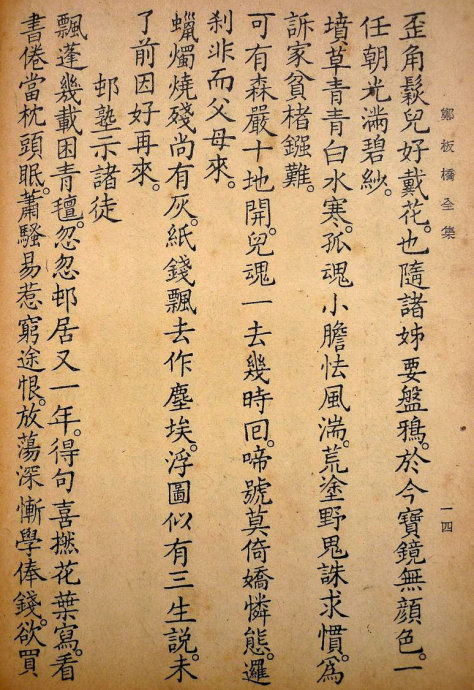 鄭板橋全集
一四
歪角鬏兒好戴花。也隨諸姊要盤鴉。於今寶鏡無顏色。一
任朝光滿碧紗。
墳草青青白水寒。孤魂小膽怯風湍。荒塗野鬼誅求慣。為
訴家貧楮鏹難。
可有森嚴十地開。兒魂一去幾時回。啼號莫倚嬌憐態。邏
剎非而父母來。
蠟燭燒殘尚有灰。紙錢飄去作塵埃。浮圖似有三生說。未
了前因好再來。
邨塾示諸徒
飄蓬幾載困青氊。忽忽邨居又一年。得句喜撚花葉寫。看
書倦當枕頭眠。蕭騷易惹窮途恨。放蕩深慚學俸錢。欲買